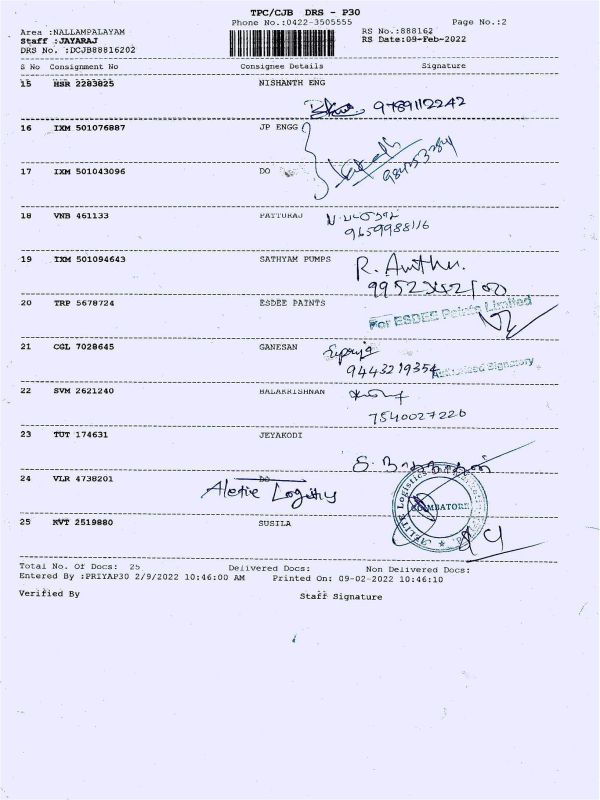 TPC/CJB DRS - P30
Phone No.:0422-3505555 Page No.:2
Area :NALLAMPALAYAM RS No.:888162
Staff :JAYARAJ RS Date:09-Feb-2022
DRS No. :DCJB88816202
S No Consignment No Consignee Details Signature
15 HSR 2283825 NISHANTH ENG
9789112242
16 IXM 501076887 JP ENGG
17 IXM 501043096 DO
18 VNB 461133 PATTURAJ
9659988116
19 IXM 501094643 SATHYAM PUMPS
R.
20 TRP 5678724 ESDEE PAINTS
For ESDEE Paints Limited
21 CGL 7028645 GANESAN
9443219354 Authorised Signatory
22 SVM 2621240 BALAKRISHNAN
7540027220
23 TUT 174631 JEYAKODI
24 VLR 4738201 DO
COIMBATORE
25 KVT 2519880 SUSILA
Total No. Of Docs: 25 Delivered Docs: Non Delivered Docs:
Entered By :PRIYAP30 2/9/2022 10:46:00 AM Printed On: 09-02-2022 10:46:10
Verified By Staff Signature